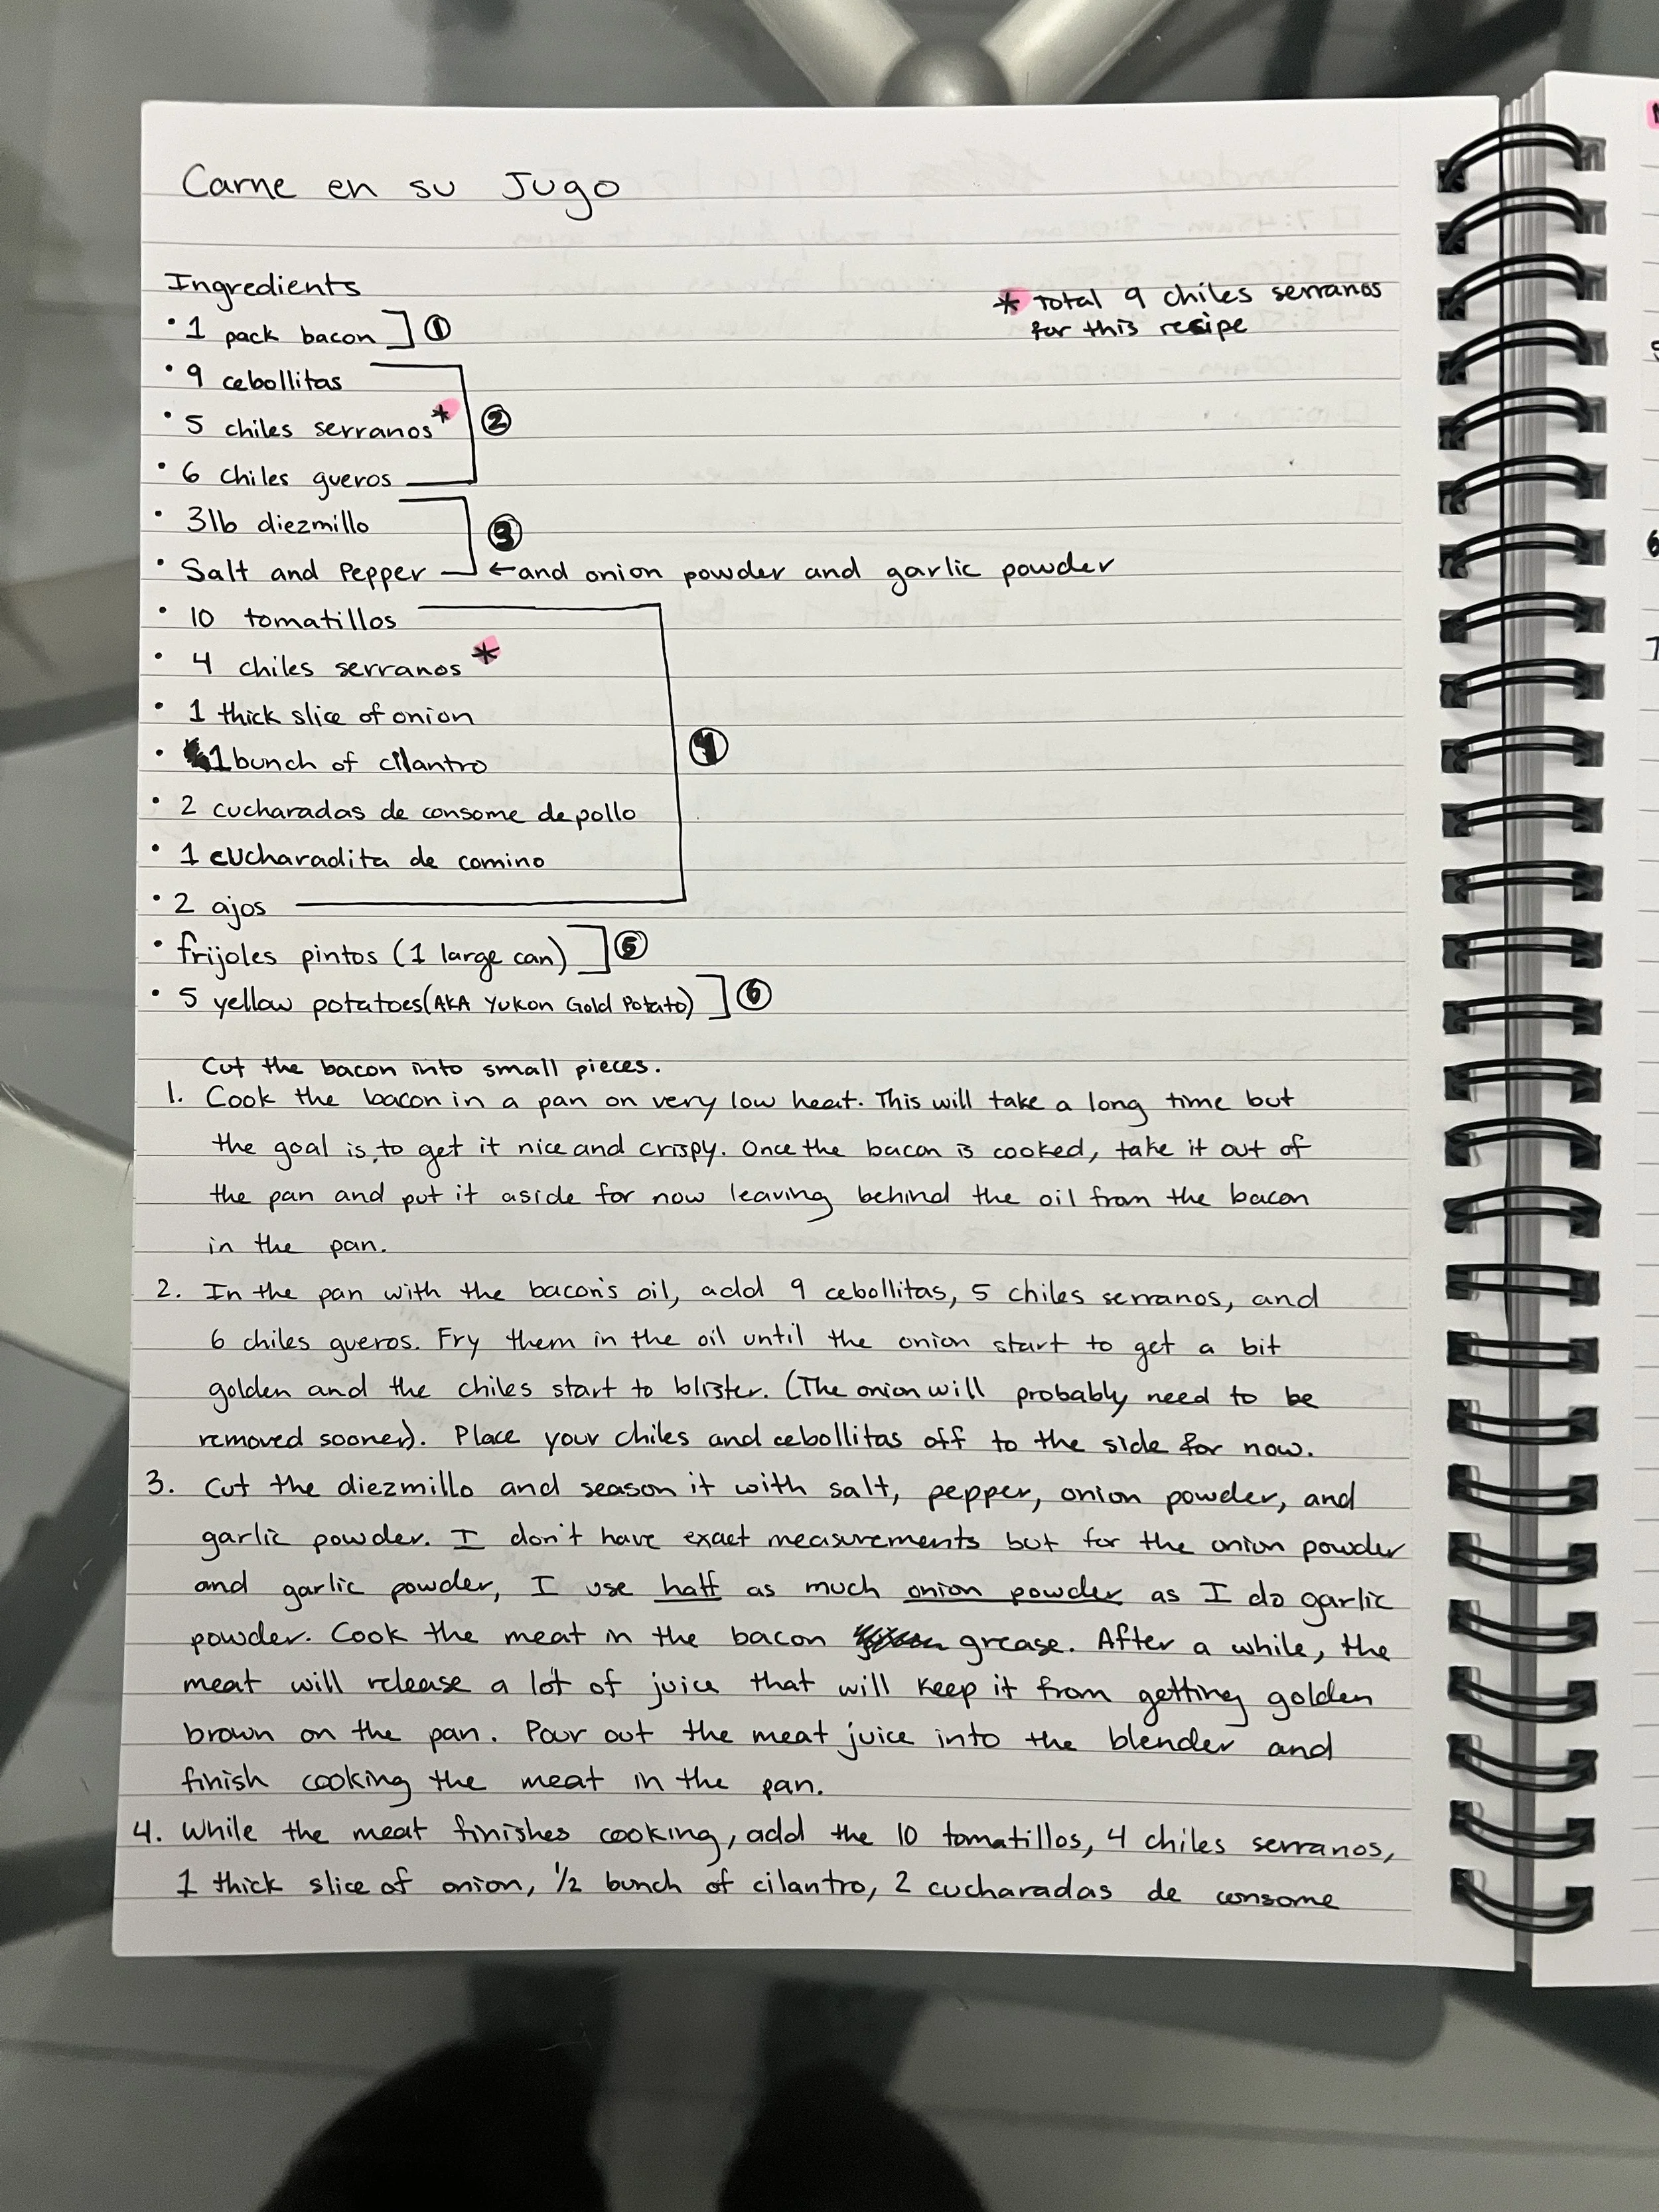 Carne en su Jugo
Ingredients
* Total 9 chiles serranos
for this resipe
• 1 pack bacon ①
• 9 cebollitas
• 5 chiles serranos* ②
• 6 chiles gueros
• 3lb diezmillo
③
• Salt and Pepper ← and onion powder and garlic powder
• 10 tomatillos
• 4 chiles serranos *
• 1 thick slice of onion
• 1 bunch of cilantro ④
• 2 cucharadas de consome de pollo
• 1 cucharadita de comino
• 2 ajos
• frijoles pintos (1 large can) ⑤
• 5 yellow potatoes (AKA Yukon Gold Potato) ⑥
Cut the bacon into small pieces.
1. Cook the bacon in a pan on very low heat. This will take a long time but
the goal is to get it nice and crispy. Once the bacon is cooked, take it out of
the pan and put it aside for now leaving behind the oil from the bacon
in the pan.
2. In the pan with the bacon's oil, add 9 cebollitas, 5 chiles serranos, and
6 chiles gueros. Fry them in the oil until the onion start to get a bit
golden and the chiles start to blister. (The onion will probably need to be
removed sooner). Place your chiles and cebollitas off to the side for now.
3. Cut the diezmillo and season it with salt, pepper, onion powder, and
garlic powder. I don't have exact measurements but for the onion powder
and garlic powder, I use half as much onion powder as I do garlic
powder. Cook the meat in the bacon grease. After a while, the
meat will release a lot of juice that will keep it from getting golden
brown on the pan. Pour out the meat juice into the blender and
finish cooking the meat in the pan.
4. While the meat finishes cooking, add the 10 tomatillos, 4 chiles serranos,
1 thick slice of onion, 1/2 bunch of cilantro, 2 cucharadas de consome